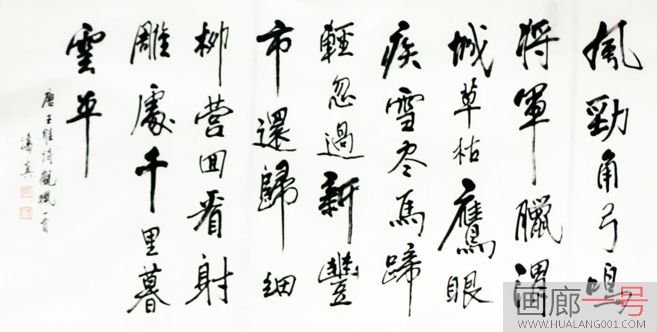 風勁角弓鳴
將軍臘渭
城草枯鷹眼
疾雪尽馬蹄
輕忽過新豐
市還歸細
柳營回看射
雕處千里暮
雲平
唐王維詩觀獵一首
画廊一号
WWW.HUALANG001.COM